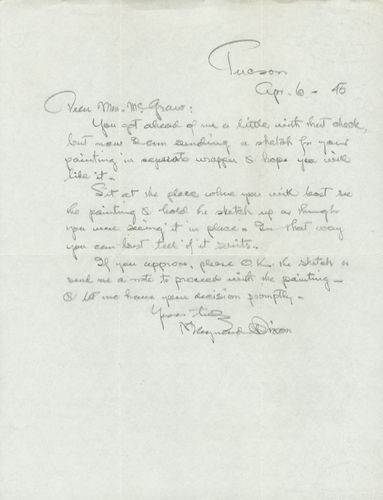 Tucson
Apr. 6 - 45
Dear Mrs. McGraw:
You got ahead of me a little with that check,
but now I am sending a sketch for your
painting in separate wrapper & hope you will
like it.
Sit at the place where you will best see
the painting & hold the sketch up as though
you were seeing it in place. In that way
you can best tell if it suits.
If you approve, please O.K. the sketch &
send me a note to proceed with the painting -
& let me have your decision promptly.
Yours truly
Maynard Dixon